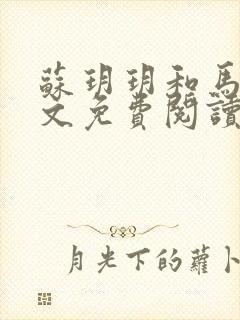 蘇玥玥和馬
文免費閱讀
月光下的蘿卜